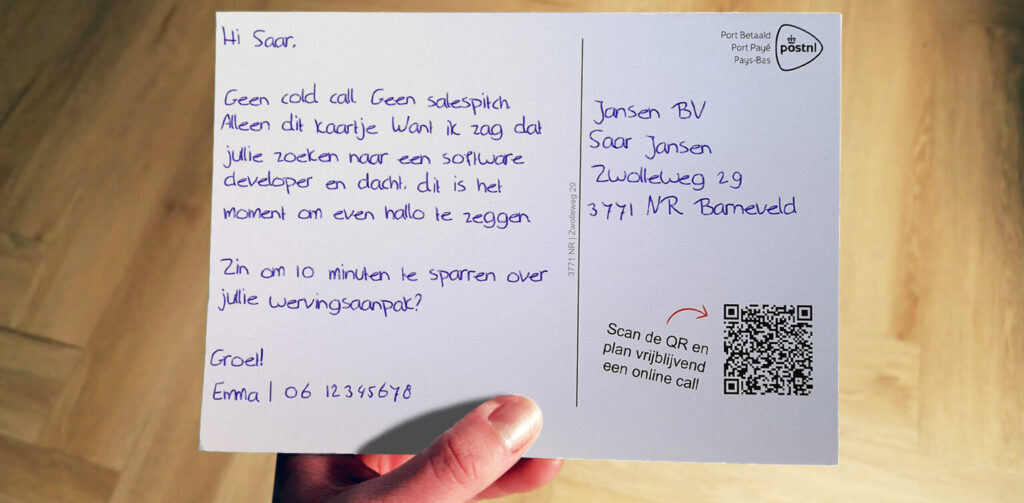 Hi Saar,
Geen cold call. Geen salespitch
Alleen dit kaartje Want ik zag dat
jullie zoeken naar een software
developer en dacht, dit is het
moment om even hallo te zeggen
Zin om 10 minuten te sparren over
jullie wervingsaanpak?
Groet!
Emma | 06 12345678
3771 NR | Zwolleweg 29
Port Betaald
Port Payé
Pays-Bas
postnl
Jansen BV
Saar Jansen
Zwolleweg 29
3771 NR Barneveld
Scan de QR en
plan vrijblijvend
een online call